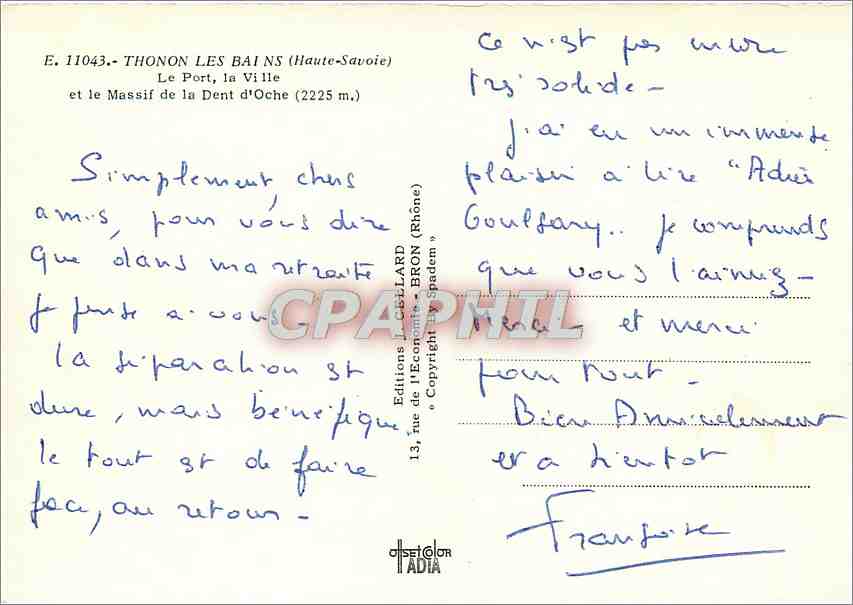 E. 11043.- THONON LES BAINS (Haute-Savoie)
Le Port, la Ville
et le Massif de la Dent d'Oche (2225 m.)
Simplement, chers
amis, pour vous dire
que dans ma retraite
je pense à vous -
la séparation est
dure, mais bénéfique.
le tout est de faire
face, au retour -
Editions J. CELLARD
13, rue de l'Economie - BRON (Rhône)
« Copyright By Spadem »
CPAPHIL
Ce n'est pas encore
très solide -
J'ai eu un immense
plaisir à lire "Adieu
Goulsary.. je comprends
que vous l'aimiez -
Merci - et merci
pour tout -
Bien Amicalement
et à bientôt
Françoise
OFFSETCOLOR
ADIA